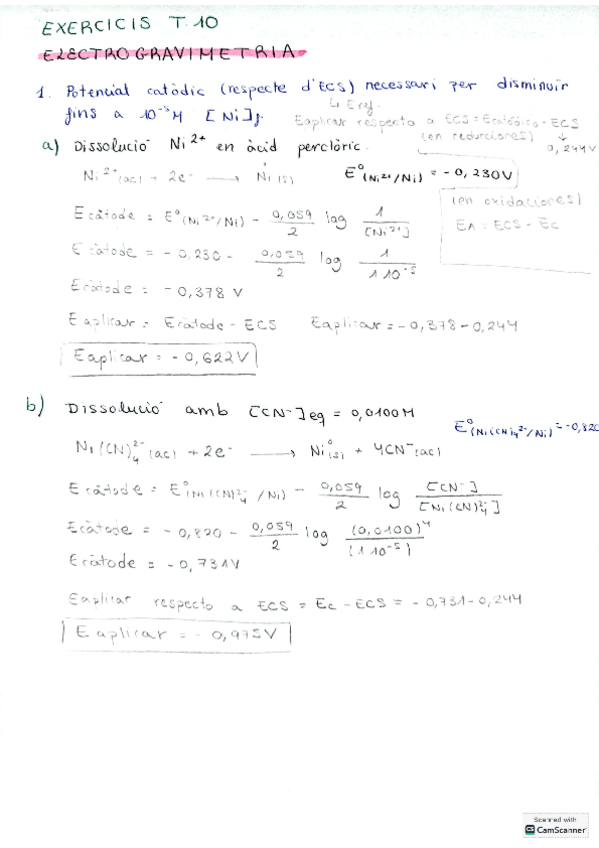 EXERCICIS T.10
ELECTROGRAVIMETRIA
1. Potencial catòdic (respecte d'ECS) necessari per disminuir
↳ Eref.
fins a 10⁻⁵M [Ni]f.
Eaplicar respecto a ECS = Ecatódico - ECS
(en reducciones) ↓
0,244V
a) Dissolució Ni²⁺ en àcid perclòric.
Ni²⁺(ac) + 2e⁻ ⟶ Ni°(s) E°(Ni²⁺/Ni) = -0,230V
(en oxidaciones)
EA = ECS - Ec
Ecàtode = E°(Ni²⁺/Ni) - 0,059/2 log 1/[Ni²⁺]
Ecàtode = -0,230 - 0,059/2 log 1/1 10⁻⁵
Ecàtode = -0,378 V
Eaplicar = Ecàtode - ECS Eaplicar = -0,378 - 0,244
Eaplicar = -0,622V
b) Dissolució amb [CN⁻]eq = 0,0100M
E°(Ni(CN)₄²⁻/Ni) = -0,820
Ni(CN)₄²⁻(ac) + 2e⁻ ⟶ Ni°(s) + 4CN⁻(ac)
Ecàtode = E°(Ni(CN)₄²⁻/Ni) - 0,059/2 log [CN⁻]/[Ni(CN)₄²⁻]
Ecàtode = -0,820 - 0,059/2 log (0,0100)⁴/(1 10⁻⁵)
Ecàtode = -0,731V
Eaplicar respecto a ECS = Ec - ECS = -0,731 - 0,244
Eaplicar = -0,975V
Scanned with
CamScanner